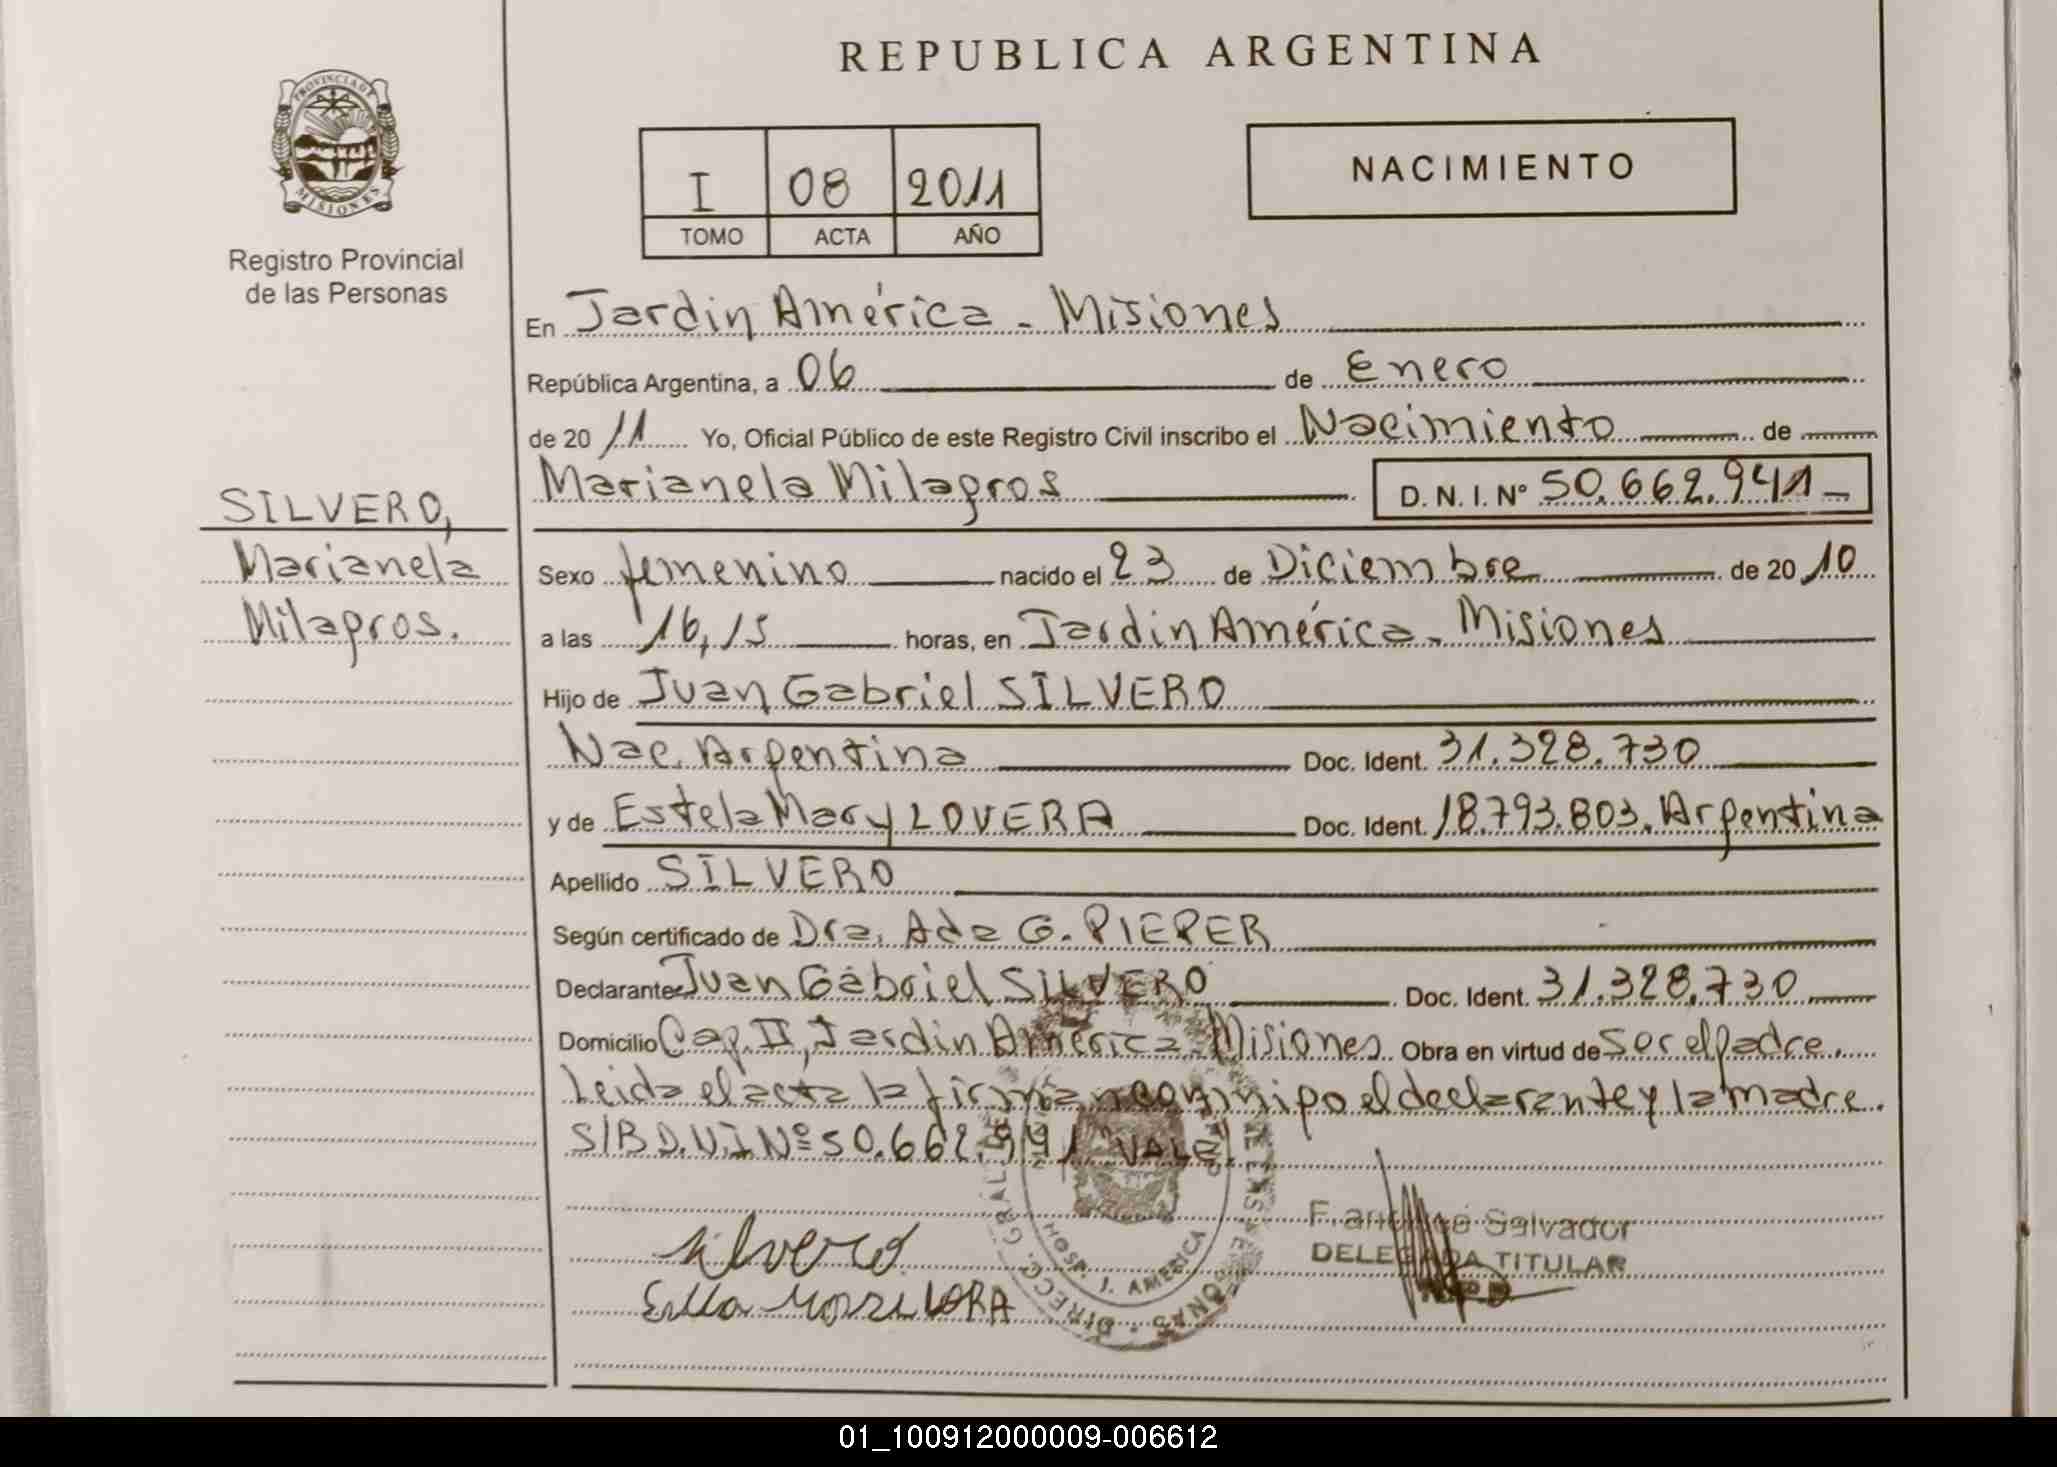 REPUBLICA ARGENTINA
PROVINCIA DE MISIONES
Registro Provincial
de las Personas
I 08 2011
TOMO ACTA AÑO
NACIMIENTO
En Jardin América - Misiones
República Argentina, a 06 de Enero
de 20 11 Yo, Oficial Público de este Registro Civil inscribo el Nacimiento de
Marianela Milagros D. N. I. Nº 50.662.941
SILVERO,
Marianela
Milagros.
Sexo femenino nacido el 23 de Diciembre de 20 10
a las 16,15 horas, en Jardin América - Misiones
Hijo de Juan Gabriel SILVERO
Nac. Argentina Doc. Ident. 31.328.730
y de Estela Mary LOVERA Doc. Ident. 18.793.803. Argentina
Apellido SILVERO
Según certificado de Dra. Ada G. PIEPER
Declarante Juan Gabriel SILVERO Doc. Ident. 31.328.730
Domicilio Cap. II, Jardin América - Misiones Obra en virtud de ser el padre.
Leida el acta la firman conmigo el declarante y la madre.
S/B D.N.I Nº 50.662.941 "VALE"
Silvero
HOSP. J. AMERICA
Salvador
DELEGADA TITULAR
01_100912000009-006612